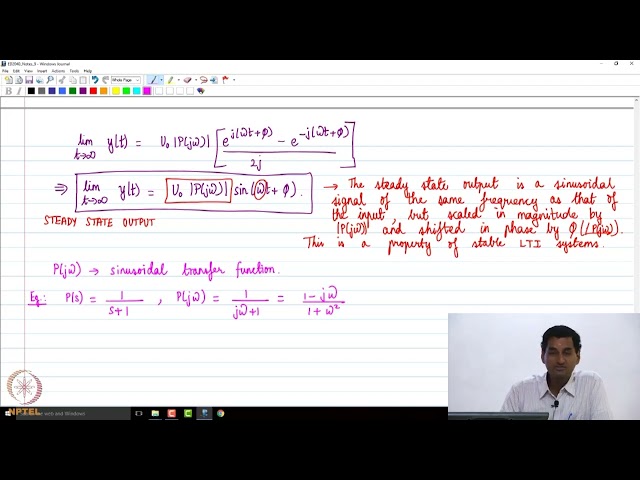 ED2040_Notes_9 - Windows Journal
File Edit View Insert Actions Tools Help
lim t→∞ y(t) = U₀ |P(jω)| [ (e^{j(ωt+φ)} − e^{−j(ωt+φ)}) / 2j ]
⇒ lim t→∞ y(t) = U₀ |P(jω)| sin(ωt + φ).
STEADY STATE OUTPUT
→ The steady state output is a sinusoidal
signal of the same frequency as that of
the input, but scaled in magnitude by
|P(jω)| and shifted in phase by φ (∠P(jω)).
This is a property of stable LTI systems.
P(jω) → sinusoidal transfer function.
Eg: P(s) = 1/(s+1) , P(jω) = 1/(jω+1) = (1−jω)/(1+ω²)
NPTEL
web and Windows